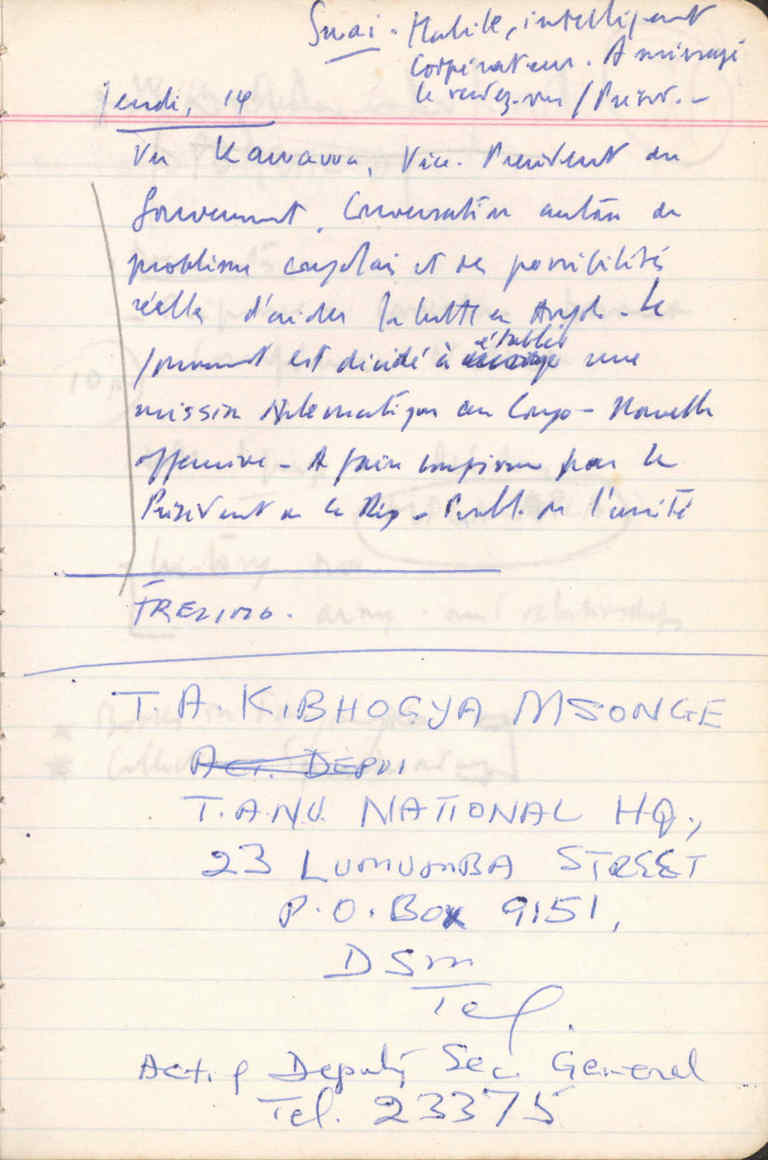 Swai - Habile, intelligent
coopérateur. A ménagé
le rendez-vous / Présid. -
Jeudi, 14
Vu Kawawa, Vice-Président du
Gouvernement. Conversation autour du
problème congolais et des possibilités
réelles d'aider la lutte en Angola - Le
gouvernement est décidé à établir une
mission diplomatique au Congo - Nouvelle
offensive - A faire confirmer par le
Président de la Rép - Probl. de l'unité
FRELIMO.
T. A. KIBHOGYA MSONGE
Act. DEPUI
T.A.N.U. NATIONAL HQ.,
23 LUMUMBA STREET
P.O. Box 9151,
DSM
Tel.
Act.g Deputy Sec. General
Tel. 23375